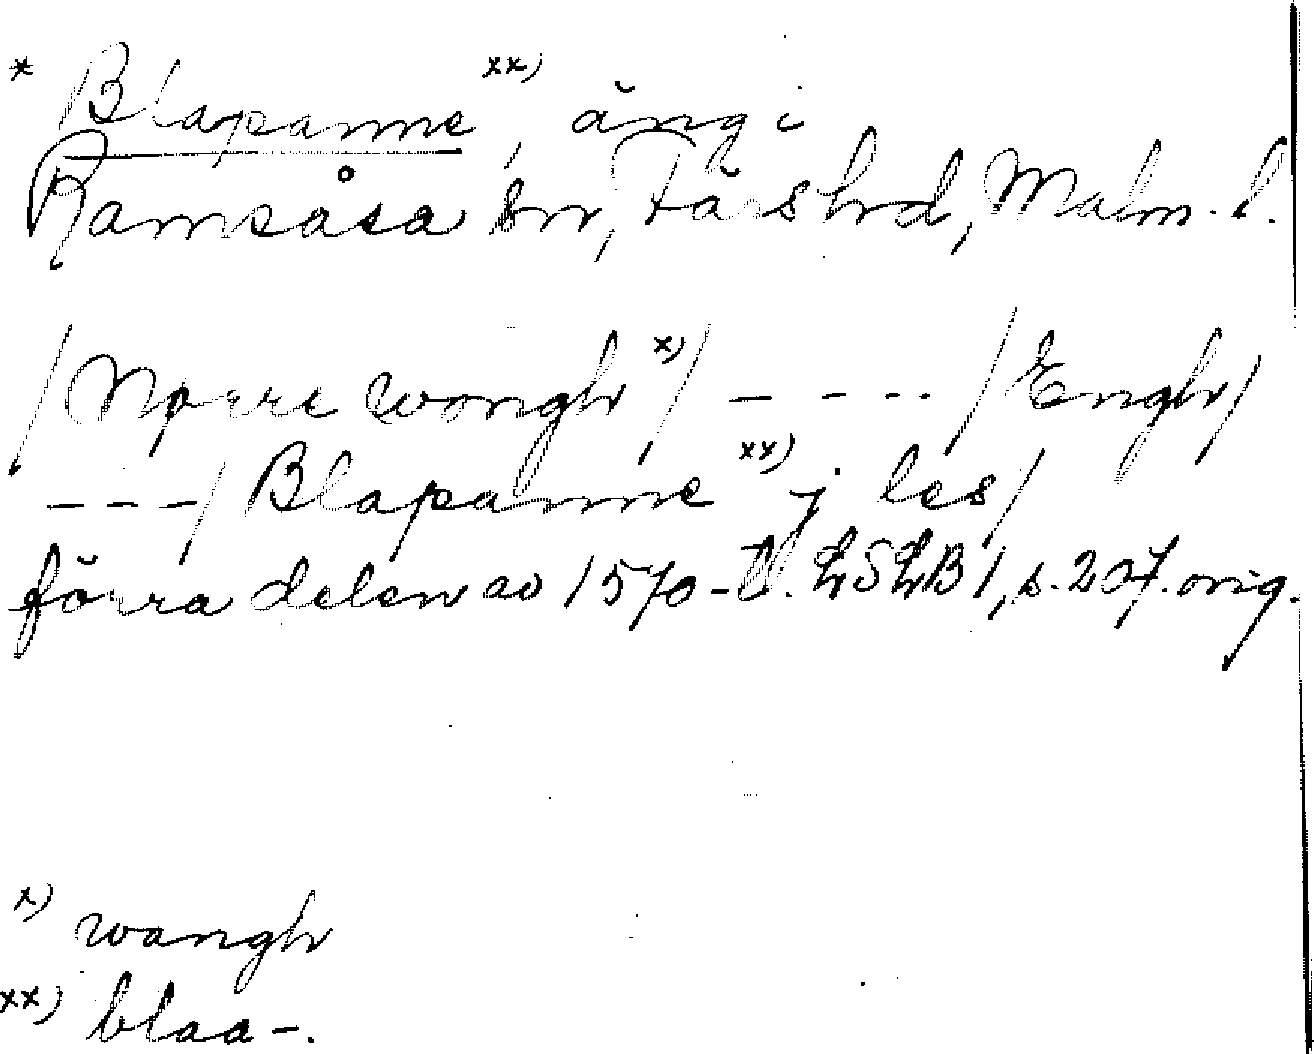 * Blapanne xx), äng i
Ramsåsa sn, Färs hd, Malm. l.
/Nørre wongh x)/ – – – – /Engh/
– – – / Blapanne xx) j les/
förra delen av 1570-t. LSLB 1, s. 207. orig.
x) wangh
xx) blaa-.